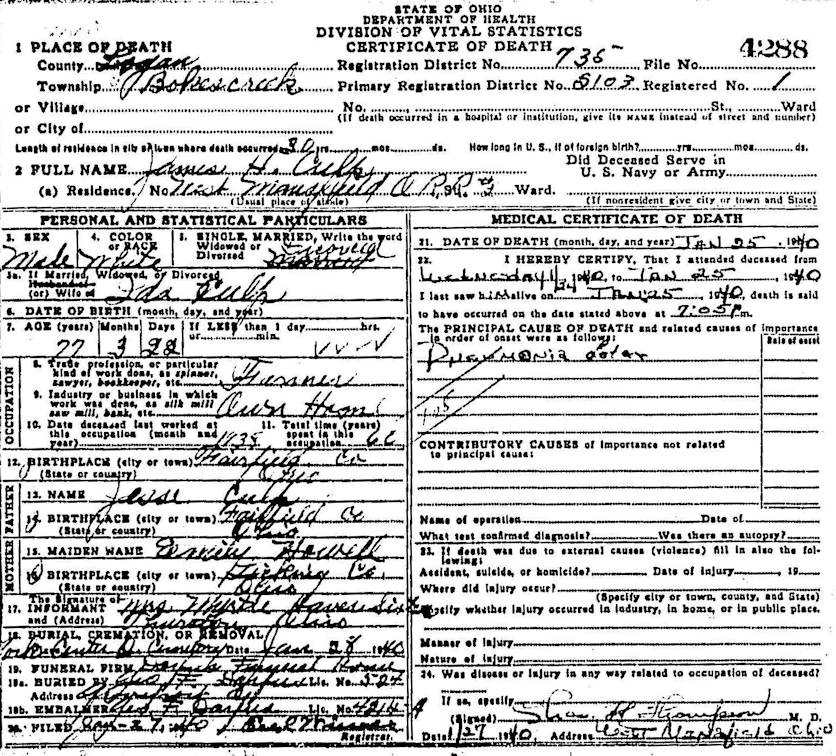 STATE OF OHIO
DEPARTMENT OF HEALTH
DIVISION OF VITAL STATISTICS
CERTIFICATE OF DEATH
4288
1 PLACE OF DEATH
County Logan Registration District No. 735 File No.
Township Bokescreek Primary Registration District No. 5103 Registered No. 1
or Village No. St., Ward
or City of (If death occurred in a hospital or institution, give its NAME instead of street and number)
Length of residence in city or town where death occurred 30 yrs. mos. ds. How long in U. S., if of foreign birth? yrs. mos. ds.
2 FULL NAME James H. Culp Did Deceased Serve in
U. S. Navy or Army
(a) Residence. No. West Mansfield O R.R. St. Ward.
(Usual place of abode) (If nonresident give city or town and State)
PERSONAL AND STATISTICAL PARTICULARS
3. SEX 4. COLOR or RACE 5. SINGLE, MARRIED, Write the word
Widowed or
Divorced
Male White
5a. If Married, Widowed, or Divorced
Husband of
(or) Wife of Ida Culp
6. DATE OF BIRTH (month, day, and year)
7. AGE (years) Months Days If LESS than 1 day hrs.
or min.
77 3 22
OCCUPATION
8. Trade, profession, or particular
kind of work done, as spinner,
sawyer, bookkeeper, etc. Farmer
9. Industry or business in which
work was done, as silk mill
saw mill, bank, etc. Own Home
10. Date deceased last worked at
this occupation (month and
year) 1938
11. Total time (years)
spent in this
occupation 60
12. BIRTHPLACE (city or town) Fairfield Co
(State or country) Ohio
FATHER
13. NAME Jesse Culp
14. BIRTHPLACE (city or town) Fairfield Co
(State or country) Ohio
MOTHER
15. MAIDEN NAME Emily Howell
16. BIRTHPLACE (city or town) Licking Co.
(State or country) Ohio
The Signature of
17. INFORMANT Mrs Myrtle Sister
and (Address) Thurston Ohio
18. BURIAL, CREMATION, OR REMOVAL
York Center O. Cemetery Date Jan 28 1940
19. FUNERAL FIRM Funeral Home
19a. BURIED BY Geo. F. Lic. No.
Address
19b. EMBALMER Geo. F. Lic. No. 4214 A
20. FILED Jan-27, 1940
Registrar.
MEDICAL CERTIFICATE OF DEATH
21. DATE OF DEATH (month, day, and year) JAN 25, 1940
22. I HEREBY CERTIFY, That I attended deceased from
WEDNESDAY 1/24, 1940, to JAN 25, 1940
I last saw him alive on JAN 25, 1940, death is said
to have occurred on the date stated above at 7:05 P.m.
The PRINCIPAL CAUSE OF DEATH and related causes of importance
in order of onset were as follows:
Date of onset
PNEUMONIA Lobar
108
CONTRIBUTORY CAUSES of importance not related
to principal cause:
Name of operation Date of
What test confirmed diagnosis? Was there an autopsy?
23. If death was due to external causes (violence) fill in also the following:
Accident, suicide, or homicide? Date of injury, 19
Where did injury occur?
(Specify city or town, county, and State)
Specify whether injury occurred in industry, in home, or in public place.
Manner of injury
Nature of injury
24. Was disease or injury in any way related to occupation of deceased?
If so, specify
(Signed) Thompson M. D.
Date 1/27 1940 Address West Mansfield Ohio